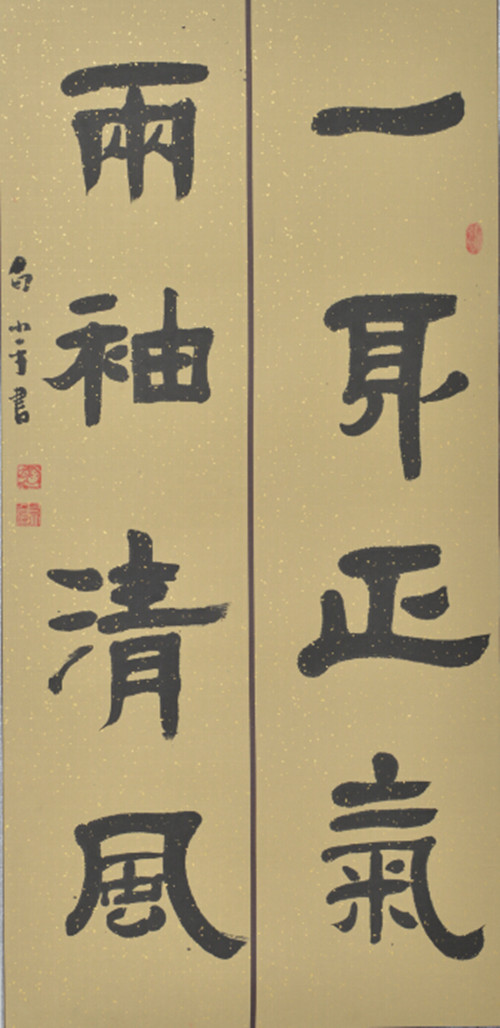 一身正氣
兩袖清風
小平書